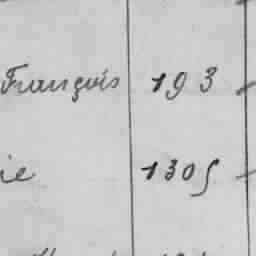 François 193
ie 1305